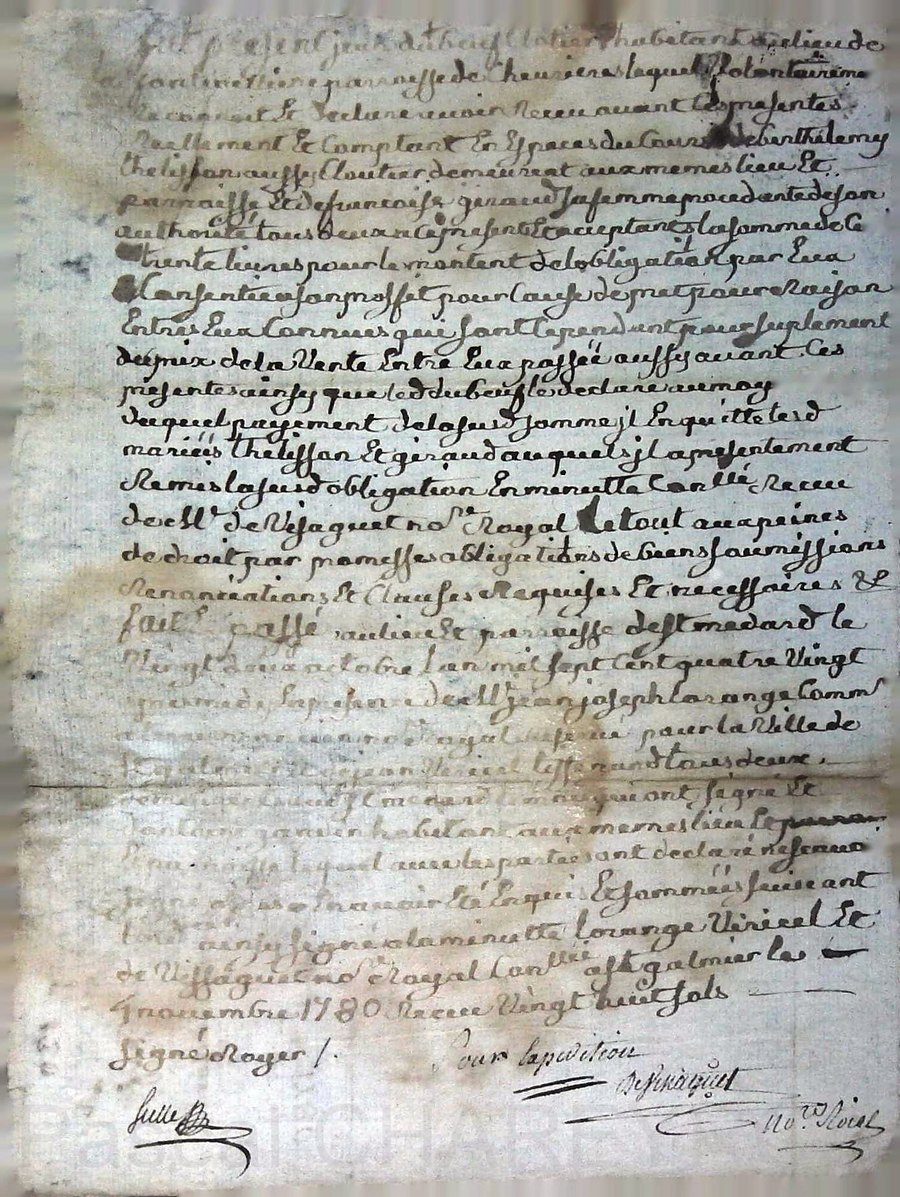 fut présent jean dubeuf Clotier habitant au lieu de
parroisse de Chevrieres lequel Volontairem
Reconnoit Et declare avoir Receu avant Ces presentes
Reellement Et Comptant En Espaces du Cours de berthelemy
thelisson aussy Cloutier demeurant aux memes lieu Et
parroisse Et de francoise giraud sa femme procedante de son
authorité tous deux icy present Et acceptants la somme de Ce
trente livres pour le montent de lobligation par Eux
Consentie a son proffet pour Cause de pret pour Raison
Entres Eux Connues que sont Cependant pour suplement
du prix de la Vente Entre Eux passée aussy avant Ces
presentes ainsy que led dubeuf le declare au moy
duquel payement de la susd somme jl En quitte lesd
mariéis thelisson Et giraud auquels jl a presentement
Remis la susd obligation En minutte Conllé Receu
de Me de Vissaguet nore Royal Le tout aux peines
de droit par promesses obligations de biens soumissions
Renonciations Et Clauses Requises Et necessaires &
fait Et passé au lieu Et parroisse de st medard le
Vingt deux octobre lan mil sept Cent quatre Vingt
presence de Me jean joseph Lorange Comm
Royal pour la Ville de
st galmier Et de jean Vericel tisserand tous deux
st medard qui ont signé Et
dantoine habitant aux memes lieu Et
parroisse lequel avec les parties ont declaré ne scavoir
signé de Ce Enavoir Eté Enquis Et sommées suivant
lord ainsy signé a la minutte Lorange Vericel Et
de Vissaguet nore Royal Conllé a st galmier le
4 novembre 1780 Receu Vingt huit sols
signé Royer /.
Pour Expedition
De Vissaguet
nore Roial
Pascal CHAREY